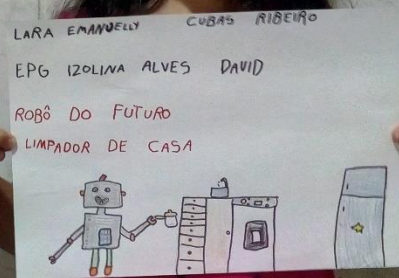 LARA EMANUELLY CUBAS RIBEIRO
EPG IZOLINA ALVES DAVID
ROBÔ DO FUTURO
LIMPADOR DE CASA